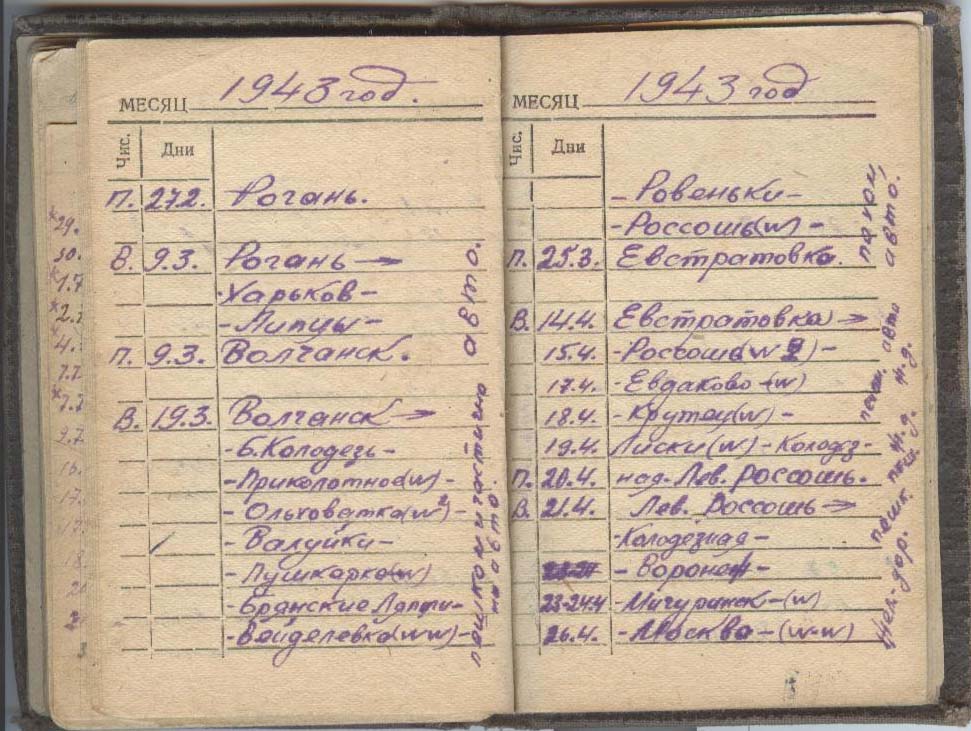 МЕСЯЦ 1943 год.
Чис. Дни
П. 27.2. Рогань.
В. 9.3. Рогань →
-Харьков-
-Липцы-
П. 9.3. Волчанск.
В. 19.3. Волчанск →
-Б.Колодезь-
-Приколотное(w)-
-Ольховатка(w²)-
-Валуйки-
-Пушкарка(w)
-Брянские Лапти-
-Вейделевка(ww)-
авто.
пешком и частично
на авто.
МЕСЯЦ 1943 год
Чис. Дни
-Ровеньки-
-Россошь(w)-
П. 25.3. Евстратовка.
В. 14.4. Евстратовка →
15.4. -Россошь(w 2)-
17.4. -Евдаково-(w)
18.4. -Крутец(w)-
19.4. Лиски(w)-Колодз-
П. 20.4. над. Лев. Россошь.
В. 21.4. Лев. Россошь →
-Колодезная-
-Воронеж-
23-24.4 -Мичуринск-(w)
26.4. -Москва-(w-w)
авто.
пешк.
жел-дор.
29.
30.
1.7
2.7
4.
7.7
7.7
9.7
16.
17.
17.
18.